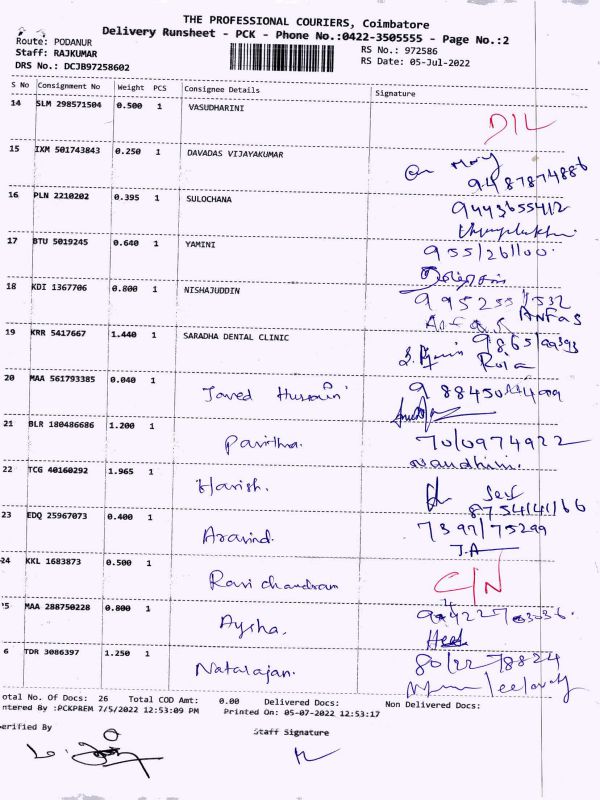 THE PROFESSIONAL COURIERS, Coimbatore
Delivery Runsheet - PCK - Phone No.:0422-3505555 - Page No.:2
Route: PODANUR
RS No.: 972586
Staff: RAJKUMAR
RS Date: 05-Jul-2022
DRS No.: DCJB97258602
S No Consignment No Weight PCS Consignee Details Signature
14 SLM 298571504 0.500 1 VASUDHARINI
D/L
15 IXM 501743843 0.250 1 DAVADAS VIJAYAKUMAR
9487874886
16 PLN 2210202 0.395 1 SULOCHANA
9443655412
17 BTU 5019245 0.640 1 YAMINI
9551261100
18 KDI 1367706 0.800 1 NISHAJUDDIN
ANFAS
19 KRR 5417667 1.440 1 SARADHA DENTAL CLINIC
Roja
20 MAA 561793385 0.040 1 Javed Hussain
21 BLR 180486686 1.200 1 Pavithra.
7010974922
Nandhini.
22 TCG 40160292 1.965 1 Harish.
Self
8754141166
23 EDQ 25967073 0.400 1 Aravind.
7397175299
J.A
24 KKL 1683873 0.500 1 Ravi chandram
C/N
25 MAA 288750228 0.800 1 Aysha.
6 TDR 3086397 1.250 1 Natarajan.
80122 78824
otal No. Of Docs: 26 Total COD Amt: 0.00 Delivered Docs: Non Delivered Docs:
ntered By :PCKPREM 7/5/2022 12:53:09 PM Printed On: 05-07-2022 12:53:17
erified By
Staff Signature